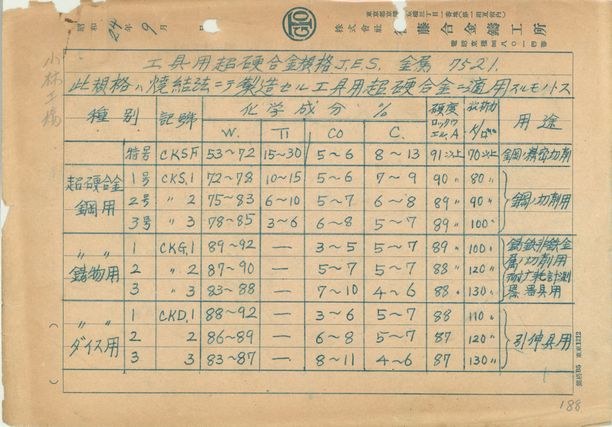 昭和24年9月 日
株式會社 藤合金鑄工所
小林工場
工具用超硬合金規格 J.E.S. 金属 7521.
此規格ハ焼結法ニテ製造セル工具用超硬合金ニ適用スルモノトス
種別 記號 化学成分 % 硬度ロックウエル.A 抗折力 用途
W. Ti CO C.
超硬合金鋼用 特号 CKS.F 53~72 15~30 5~6 8~13 91以上 70以上 鋼ノ精密切削
1号 CKS.1 72~78 10~15 5~6 7~9 90〃 80〃 鋼ノ切削用
2号 〃2 75~83 6~10 5~7 6~8 89〃 90〃
3号 〃3 78~85 3~6 6~8 5~7 89〃 100〃
〃〃鋳物用 1 CKG.1 89~92 — 3~5 5~7 89〃 100〃 鋳鉄非鉄金属ノ切削用
2 〃2 87~90 — 5~7 5~7 88〃 120〃 耐摩耗計測器器具用
3 〃3 83~88 7~10 4~6 88〃 130〃
〃〃ダイス用 1 CKD.1 88~92 — 3~6 5~7 88 110〃 引伸具用
2 2 86~89 — 6~8 5~7 87 120〃
3 3 83~87 8~11 4~6 87 130〃
188